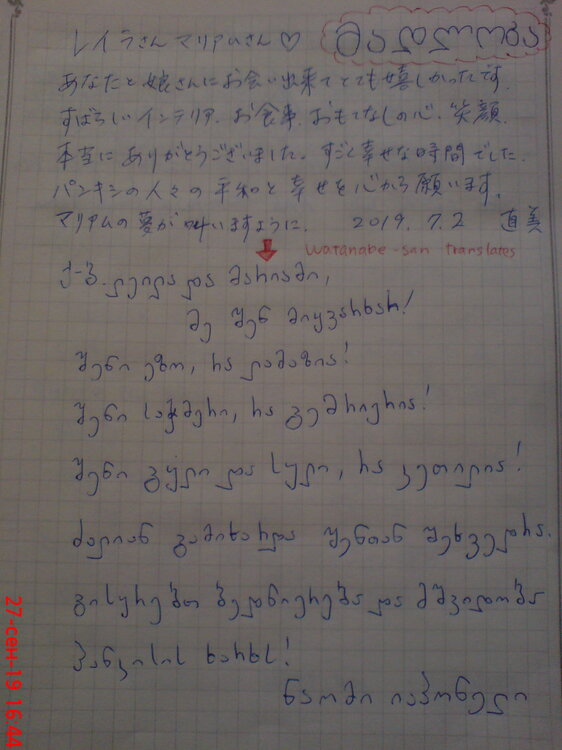 レイラさん マリアムさん♡ მადლობა
あなたと娘さんにお会い出来てとても嬉しかったです.
すばらしいインテリア. お食事. おもてなしの心. 笑顔.
本当にありがとうございました. すごく幸せな時間でした.
パンキシの人々の平和と幸せを心から願います.
マリアムの夢が叶いますように. 2019. 7. 2 直美
Watanabe-san translates
ქ-ბ. ლეილა და მარიამი,
მე შენ მიყვარხარ!
შენი ეზო, რა ლამაზია!
შენი საჭმერი, რა გემრიერია!
შენი გული და სული, რა კეთილია!
ძალიან გამიხარდა შენთან შეხვედრა.
გისურებთ ბედნიერება და მშვიდობა
პანკისის ხარხს!
ნაომი იაპონელი
27-сен-19 16:44